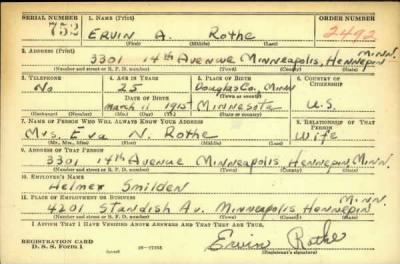 SERIAL NUMBER 1. NAME (Print) ORDER NUMBER
752 ERVIN A. Rothe 2492
(First) (Middle) (Last)
2. ADDRESS (Print)
3301 14th Avenue Minneapolis, Hennepin Minn.
(Number and street or R. F. D. number) (Town) (County) (State)
3. TELEPHONE 4. AGE IN YEARS 5. PLACE OF BIRTH 6. COUNTRY OF CITIZENSHIP
No 25 Douglas Co. Minn
DATE OF BIRTH (Town or county)
March 11 1915 Minnesota U.S.
(Mo.) (Day) (Yr.) (State or country)
7. NAME OF PERSON WHO WILL ALWAYS KNOW YOUR ADDRESS 8. RELATIONSHIP OF THAT PERSON
Mrs. Eva N. Rothe Wife
(Mr., Mrs., Miss) (First) (Middle) (Last)
9. ADDRESS OF THAT PERSON
3301 14th Avenue Minneapolis Hennepin, Minn.
(Number and street or R. F. D. number) (Town) (County) (State)
10. EMPLOYER'S NAME
Helmer Smilden
11. PLACE OF EMPLOYMENT OR BUSINESS
4201 Standish Av. Minneapolis Hennepin Minn.
(Number and street or R. F. D. number) (Town) (County) (State)
I AFFIRM THAT I HAVE VERIFIED ABOVE ANSWERS AND THAT THEY ARE TRUE.
REGISTRATION CARD
D. S. S. FORM 1 Ervin Rothe
(Registrant's signature)